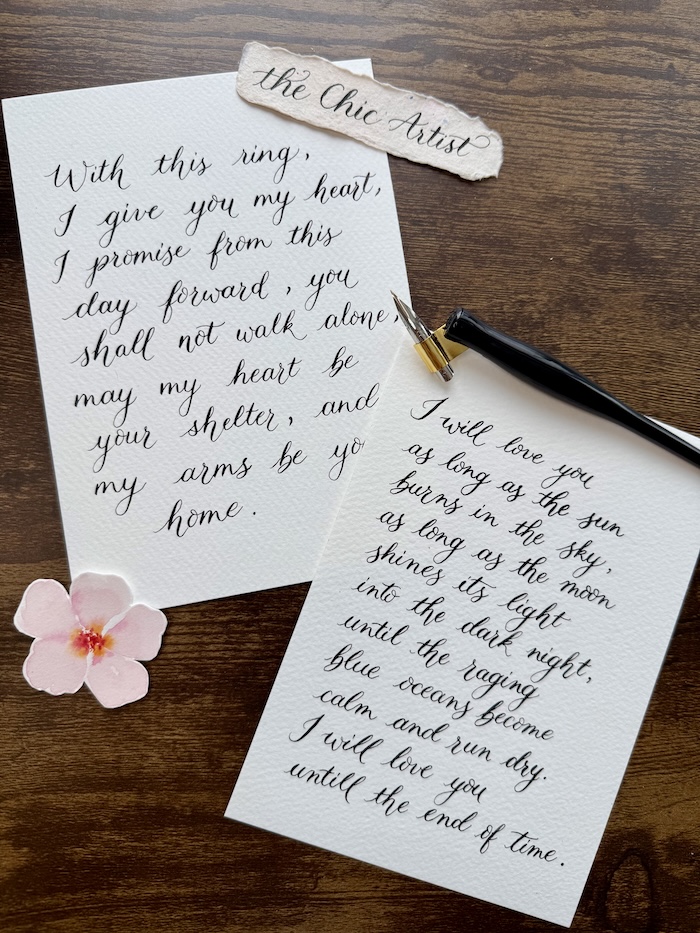 the Chic Artist
With this ring,
I give you my heart,
I promise from this
day forward, you
shall not walk alone,
may my heart be
your shelter, and
my arms be yo
home.
I will love you
as long as the sun
burns in the sky,
as long as the moon
shines its light
into the dark night,
until the raging
blue oceans become
calm and run dry.
I will love you
untill the end of time.